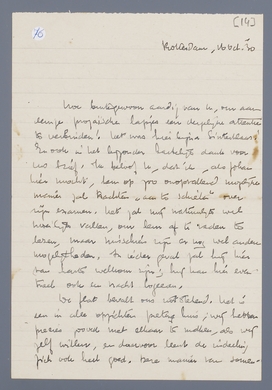 [14]
76
Rotterdam, 16 Oct. '30
Hoe buitengewoon aardig van u, om aan
prozaïsche hapjes een dergelijke attentie
te verbinden! Het was hier bijna Sinterklaas!
En ook in het bijzonder hartelijk dank voor
uw brief. Ik beloof u, dat ik, als Johan
hier mocht, hem op zoo onopvallend mogelijke
manier zal trachten
zijn examen. Het zal mij natuurlijk wel
moeilijk vallen, om hem af te raden te
lezen, maar misschien zijn er nog wel andere
mogelijkheden. In ieder geval zal hij hier
van harte welkom zijn; hij kan hier even-
tueel ook een nacht logeeren.
De flat bevalt ons uitstekend. Het is
een in alle opzichten prettig huis; wij hebben
precies zooveel met elkaar te maken, als wij
zelf willen, en daarvoor leent de indeeling
zich ook heel goed. Deze manier van samen-